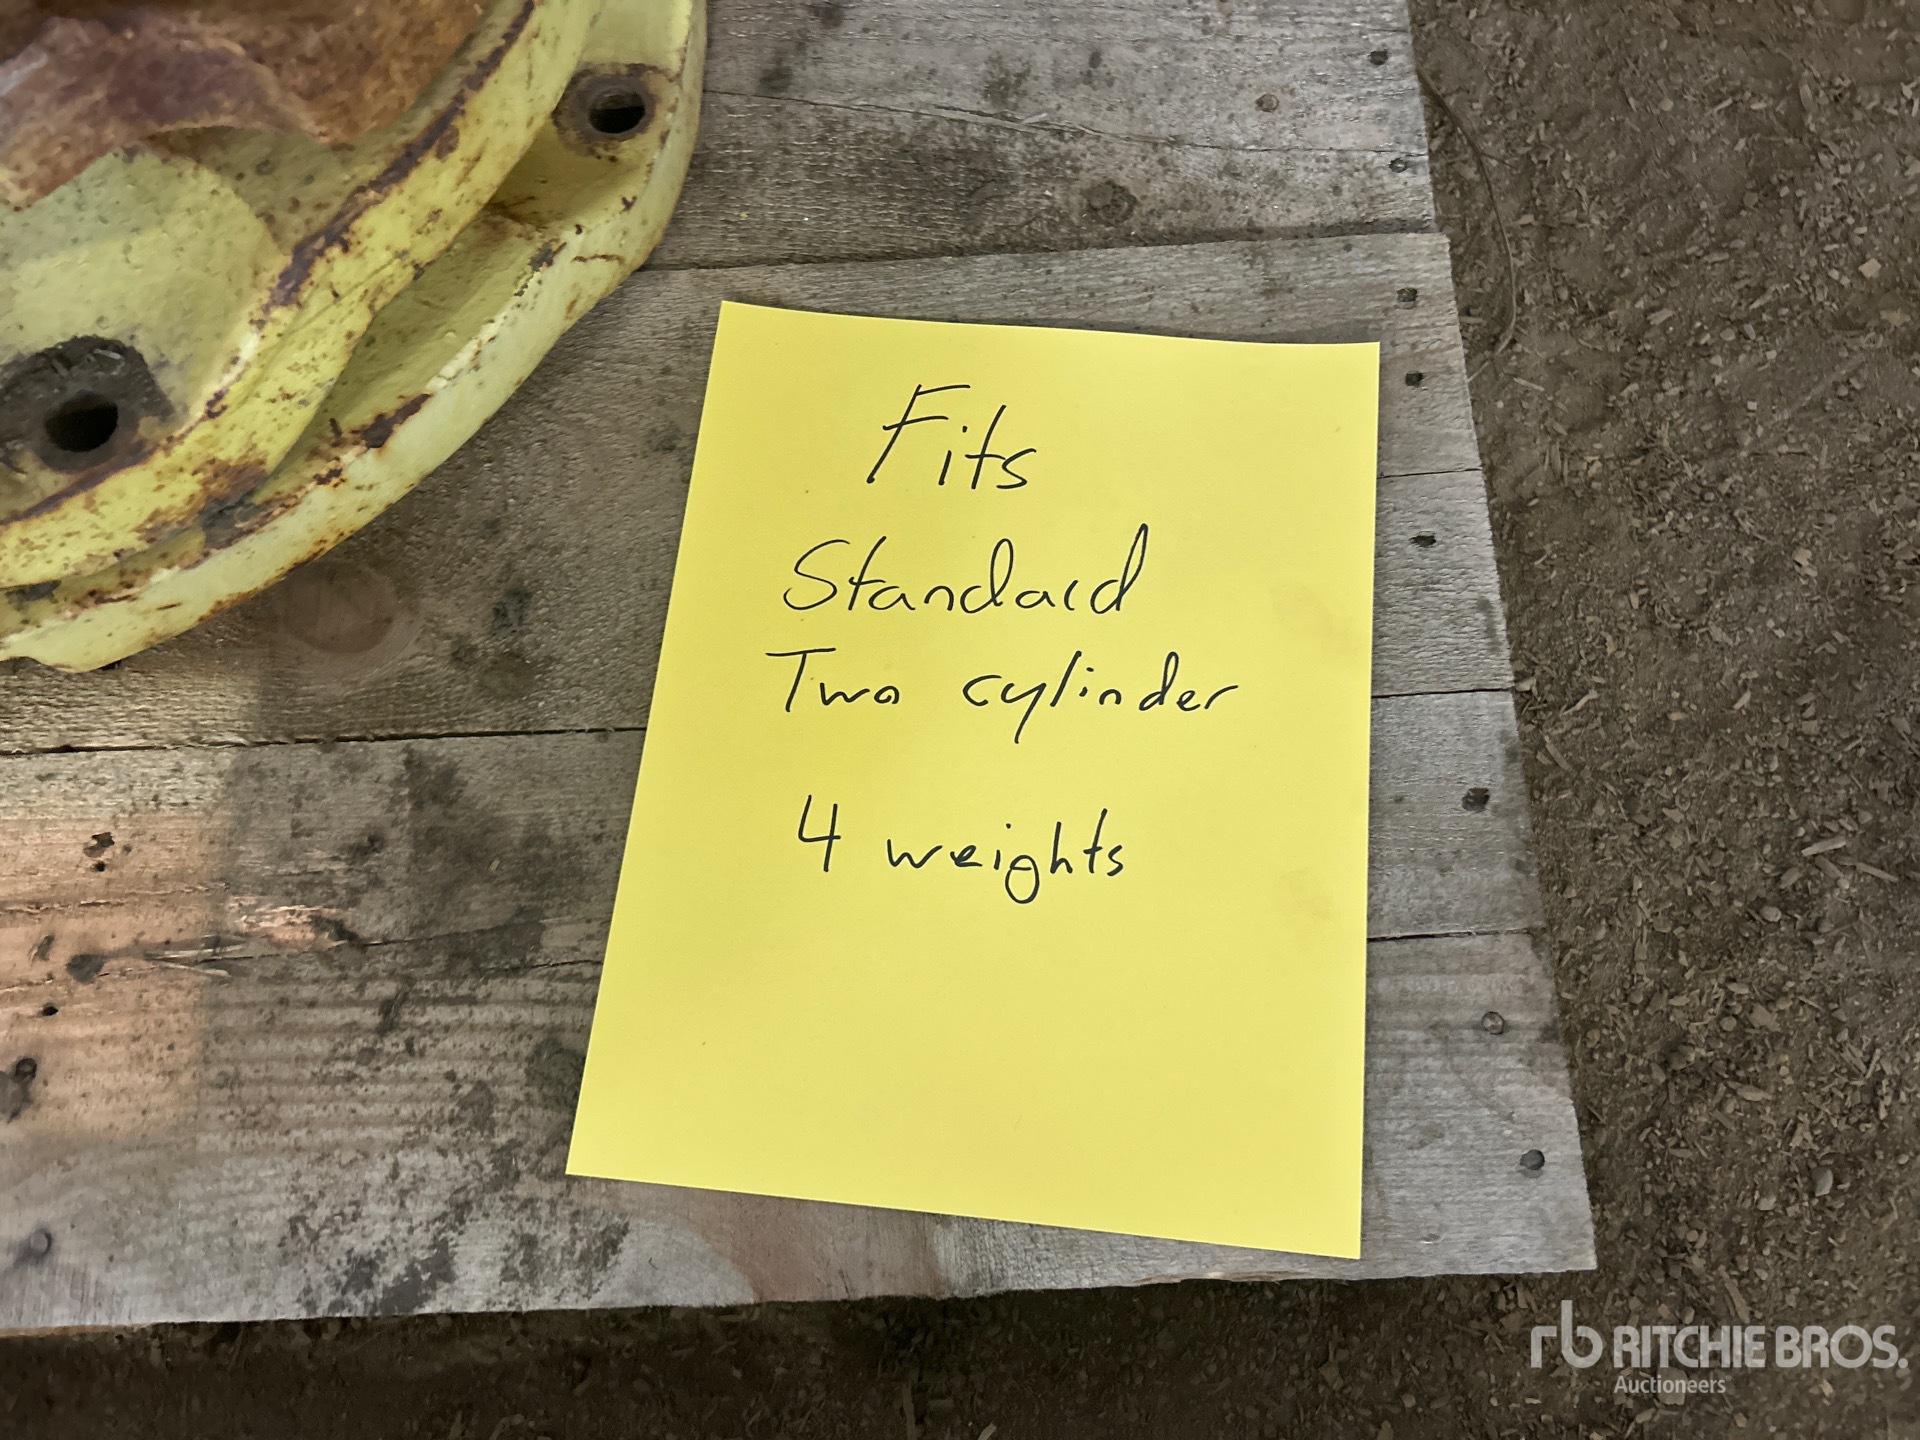 Fits
Standard
Two cylinder
4 weights
rb RITCHIE BROS.
Auctioneers